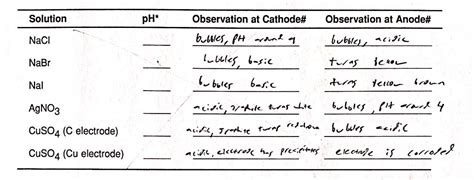 Solution pH* Observation at Cathode# Observation at Anode#
NaCl bubbles, pH around 9 bubbles, acidic
NaBr bubbles, basic turns yellow
NaI bubbles basic turns yellow brown
AgNO3 acidic, graphite turns white bubbles, pH around 4
CuSO4 (C electrode) acidic, graphite turns red brown bubbles acidic
CuSO4 (Cu electrode) acidic, electrode has precipitates electrode is corroded